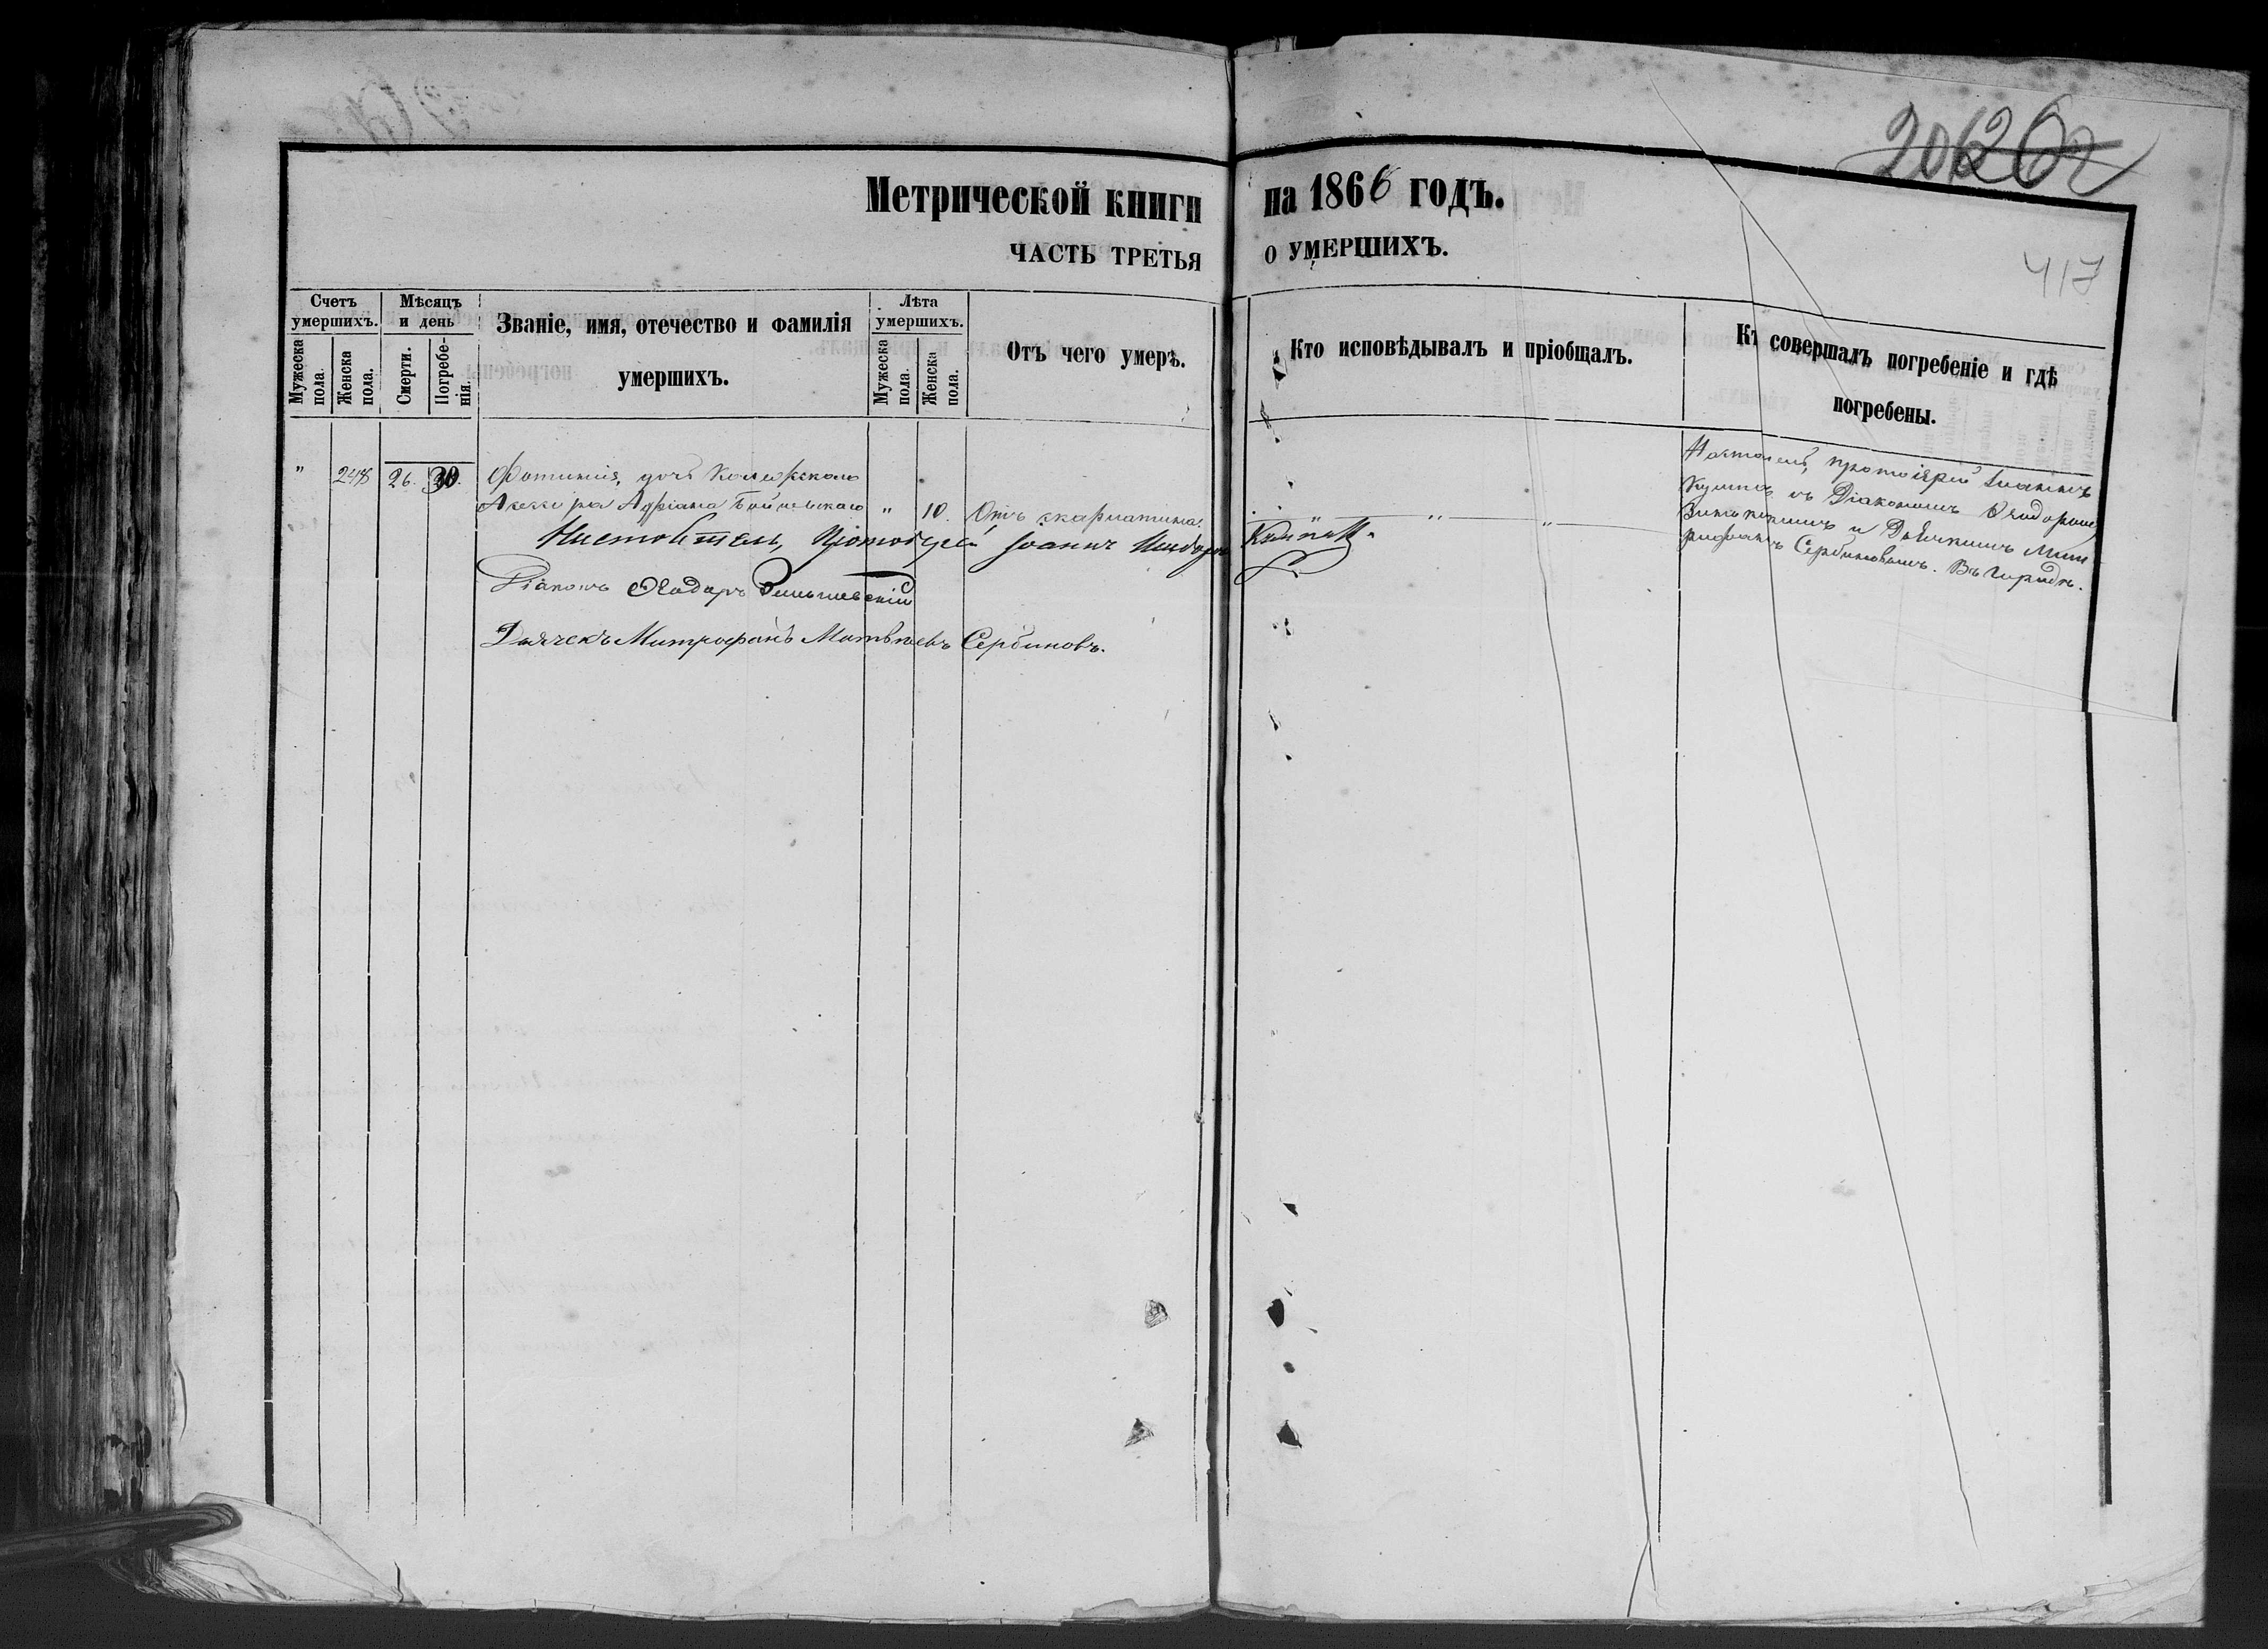 2012
417
Метрической книги на 1866 годъ.
ЧАСТЬ ТРЕТЬЯ О УМЕРШИХЪ.
Счетъ умершихъ.
Мужеска пола.
Женска пола.
Мѣсяцъ и день
Смерти.
Погребенія.
Званіе, имя, отечество и фамилія
умершихъ.
Лѣта умершихъ.
Мужеска пола.
Женска пола.
Отъ чего умерѣ.
Кто исповѣдывалъ и пріобщалъ.
Кт совершалъ погребеніе и гдѣ
погребены.
" 248 26. 30.
Фотинія, дочь Колежскаго
Ассесора Адріана " 10. Отъ скарлатины.
Настоятель, протоіерей Іоаннъ
съ Діакономъ Ѳеодоромъ
и Дьячкомъ Мит
рофаномъ Сербиновымъ. Въ
Настоятель, Протоіерей Іоаннъ
Діаконъ Ѳеодоръ
Дьячекъ Митрофанъ Матвѣевъ Сербиновъ.